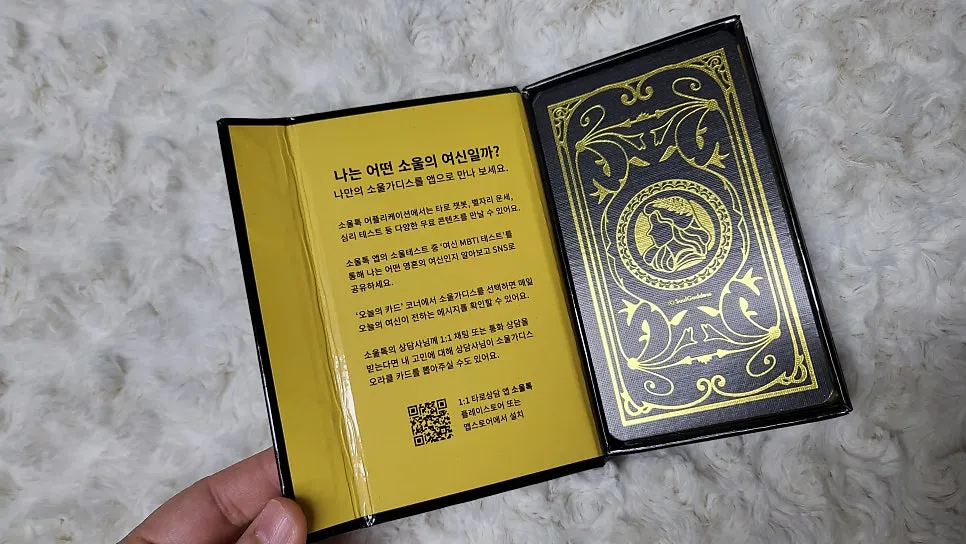 나는 어떤 소울의 여신일까?
나만의 소울가디스를 앱으로 만나 보세요.
소울톡 어플리케이션에서는 타로 챗봇, 별자리 운세,
심리 테스트 등 다양한 무료 콘텐츠를 만날 수 있어요.
소울톡 앱의 소울테스트 중 '여신 MBTI 테스트'를
통해 나는 어떤 영혼의 여신인지 알아보고 SNS로
공유하세요.
'오늘의 카드' 코너에서 소울가디스를 선택하면 매일
오늘의 여신이 전하는 메시지를 확인할 수 있어요.
소울톡의 상담사님께 1:1 채팅 또는 통화 상담을
받는다면 내 고민에 대해 상담사님이 소울가디스
오라클 카드를 뽑아주실 수도 있어요.
1:1 타로상담 앱 소울톡
플레이스토어 또는
앱스토어에서 설치
Soul Goddess